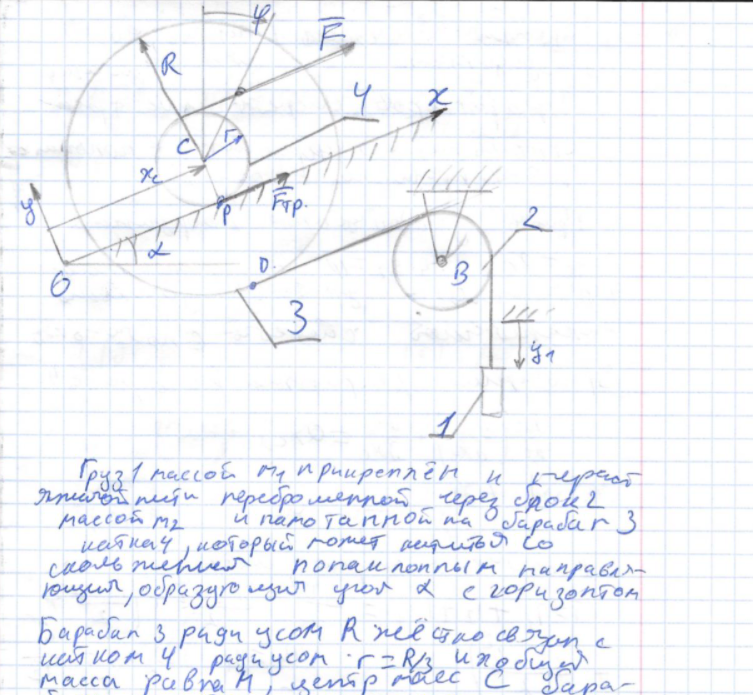 φ
F
R
4
x
C
r
x_c
y
P
F_тр.
2
α
D.
B
O
3
y₁
1
Груз 1 массой m₁ прикреплён к нераст
яжимой нити переброшенной через блок 2
массой m₂ и намотанной на барабан 3
катка 4, который может катиться со
скольжением по наклонным направля-
ющим, образующим угол α с горизонтом
Барабан 3 радиусом R жёстко связан с
катком 4 радиусом r = R/3 их общая
масса равна M, центр масс C бара-